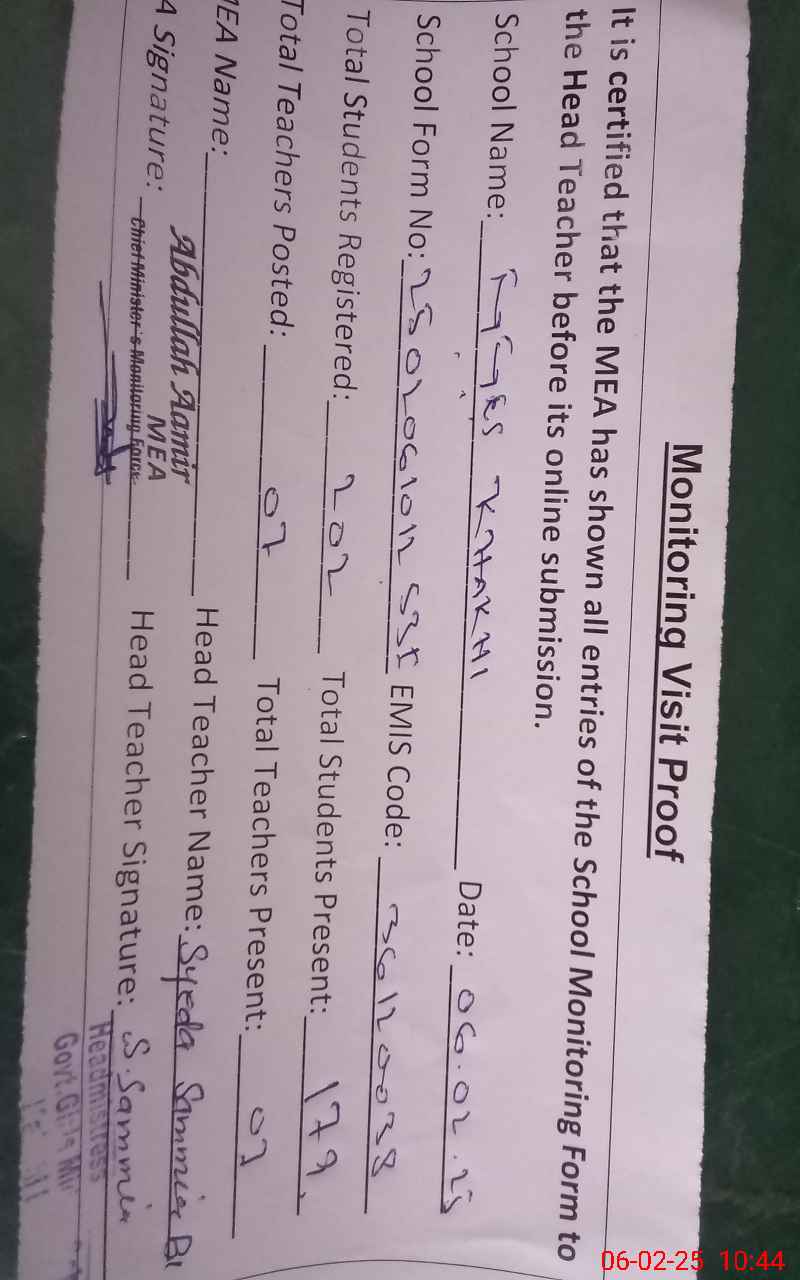 Monitoring Visit Proof
It is certified that the MEA has shown all entries of the School Monitoring Form to
the Head Teacher before its online submission.
School Name: KHAKHI Date: 06.02.25
School Form No: EMIS Code: 36120038
Total Students Registered: 202 Total Students Present: 179
Total Teachers Posted: 07 Total Teachers Present: 07
MEA Name: Abdullah Aamir Head Teacher Name: Syeda Sammia Bi
MEA
A Signature: Chief Minister's Monitoring Force Head Teacher Signature: S.Sammia
Headmistress
Govt. Girls
06-02-25 10:44